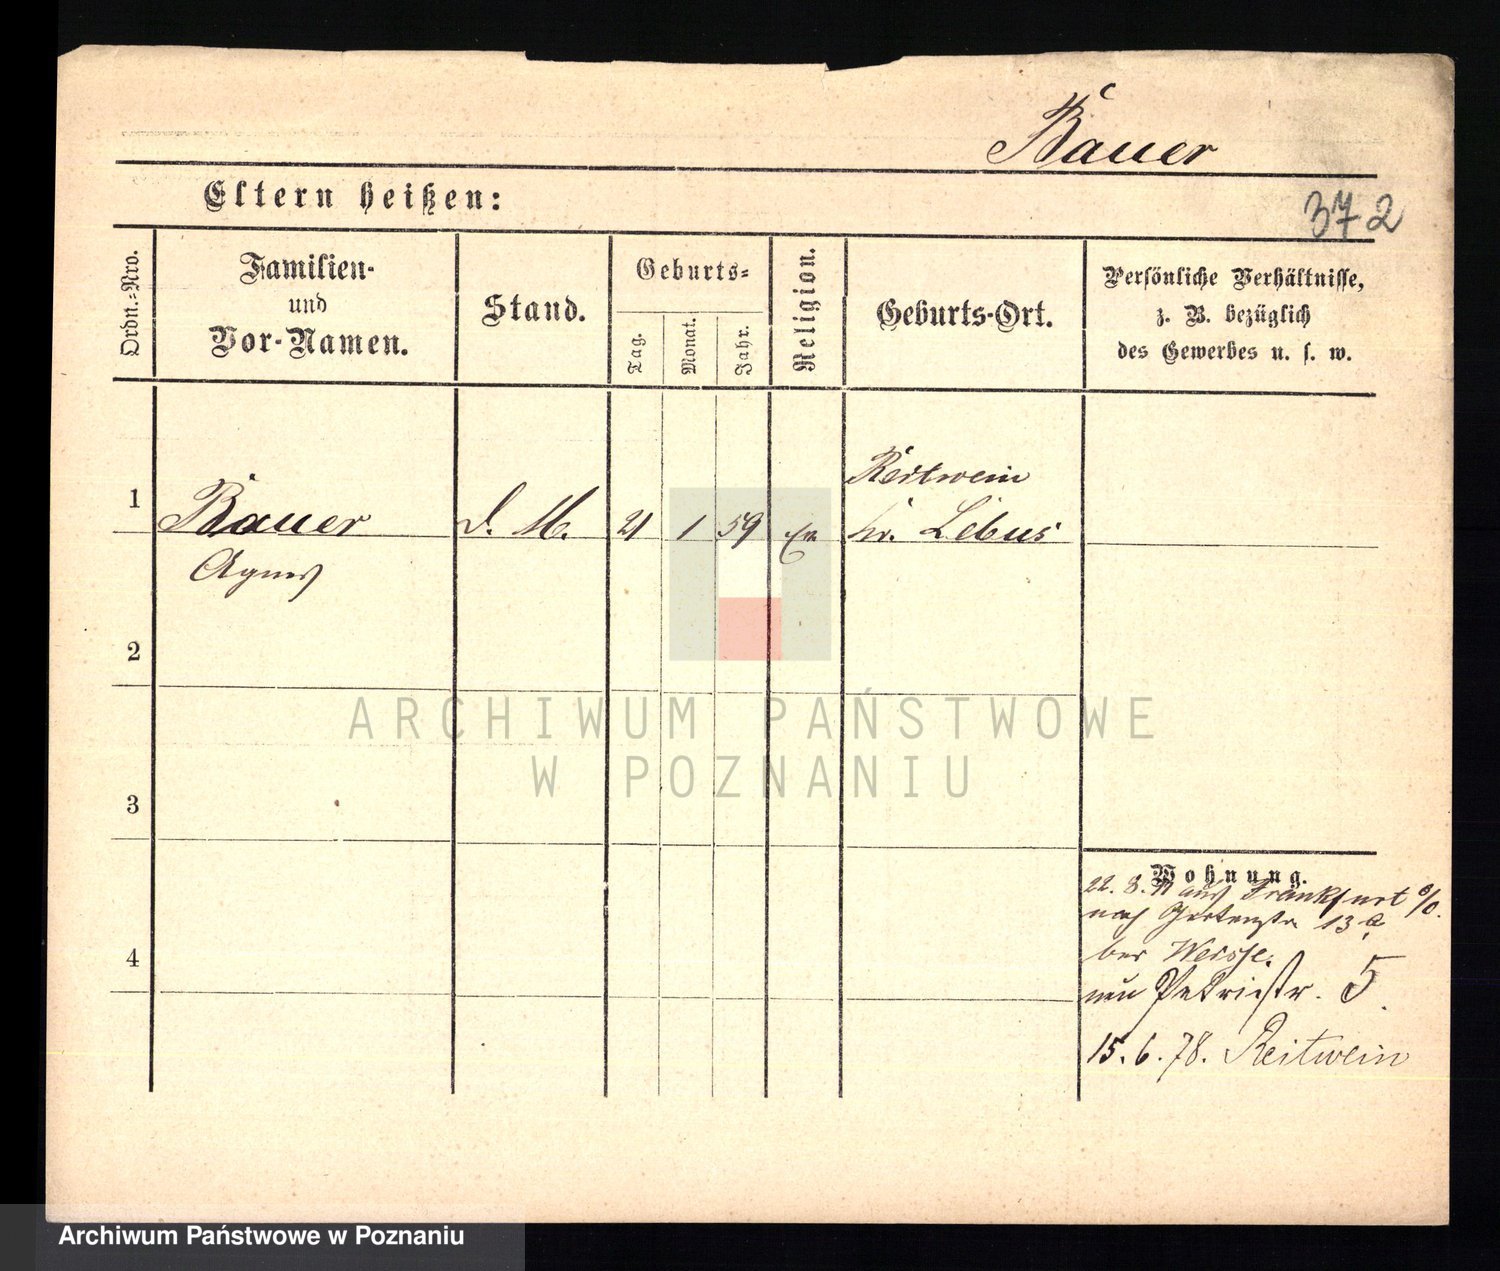 Bauer
Eltern heißen:
372
Ordn.-Nro.
Familien-
und
Vor-Namen.
Stand.
Geburts-
Tag.
Monat.
Jahr.
Religion.
Geburts-Ort.
Persönliche Verhältnisse,
z. B. bezüglich
des Gewerbes u. s. w.
1
Bauer
Agnes
D. M.
21
1
59
ev
Reitwein
Kr. Lebus
2
3
4
ARCHIWUM PAŃSTWOWE
W POZNANIU
Wohnung.
22. 8. 77 aus Frankfurt a/O.
nach Gartenstr 13 a.
bei Weisse.
neu Petristr. 5
15. 6. 78. Reitwein
Archiwum Państwowe w Poznaniu